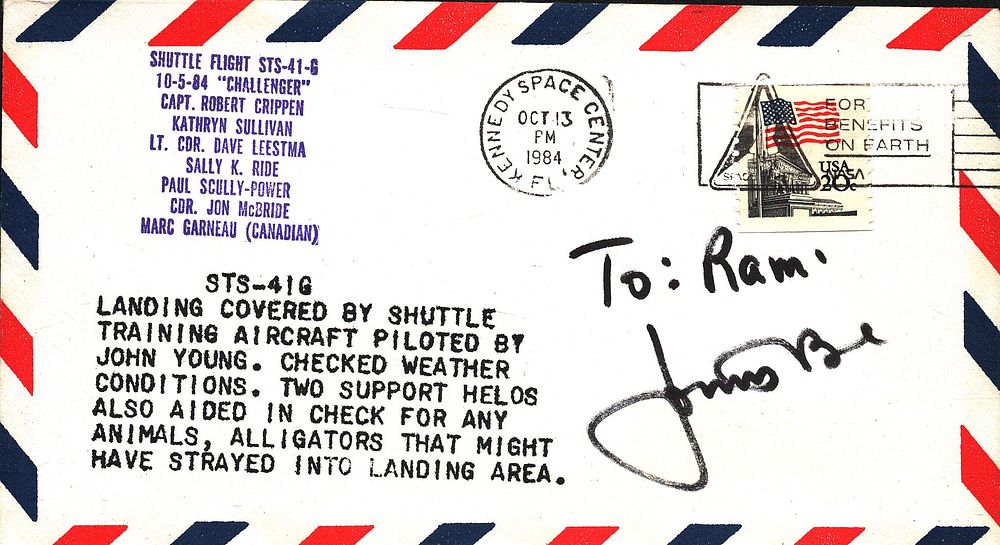 SHUTTLE FLIGHT STS-41-G
10-5-84 "CHALLENGER"
CAPT. ROBERT CRIPPEN
KATHRYN SULLIVAN
LT. CDR. DAVE LEESTMA
SALLY K. RIDE
PAUL SCULLY-POWER
CDR. JON McBRIDE
MARC GARNEAU (CANADIAN)
KENNEDY SPACE CENTER, FL
OCT 13
PM
1984
FOR
BENEFITS
ON EARTH
USA
20c
NASA
To: Ram.
STS-41G
LANDING COVERED BY SHUTTLE
TRAINING AIRCRAFT PILOTED BY
JOHN YOUNG. CHECKED WEATHER
CONDITIONS. TWO SUPPORT HELOS
ALSO AIDED IN CHECK FOR ANY
ANIMALS, ALLIGATORS THAT MIGHT
HAVE STRAYED INTO LANDING AREA.